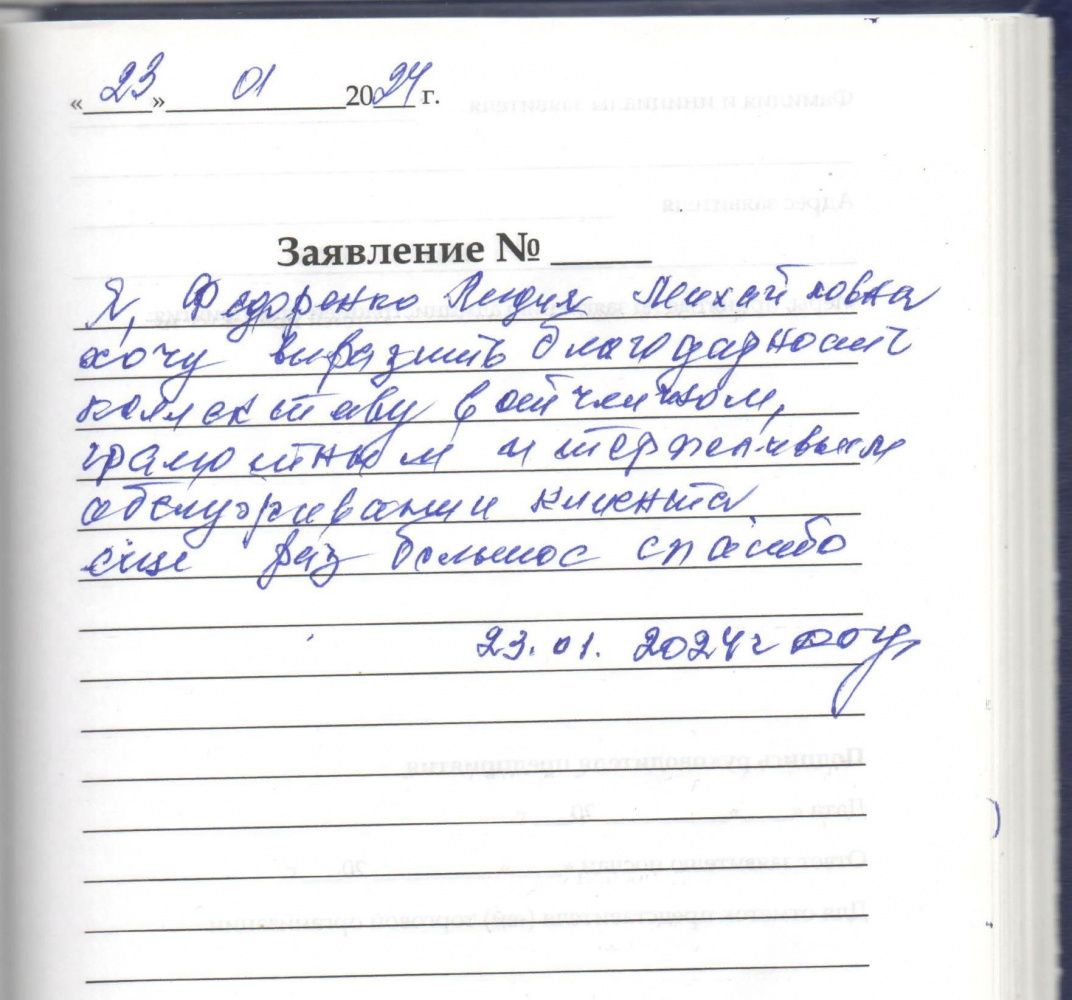 «23» 01 2024 г.
Заявление № ____
Я, Федоренко Лидия Михайловна
хочу выразить благодарность
коллективу в отличном,
грамотном и терпеливым
обслуживании клиента
еще раз большое спасибо
23.01.2024 г